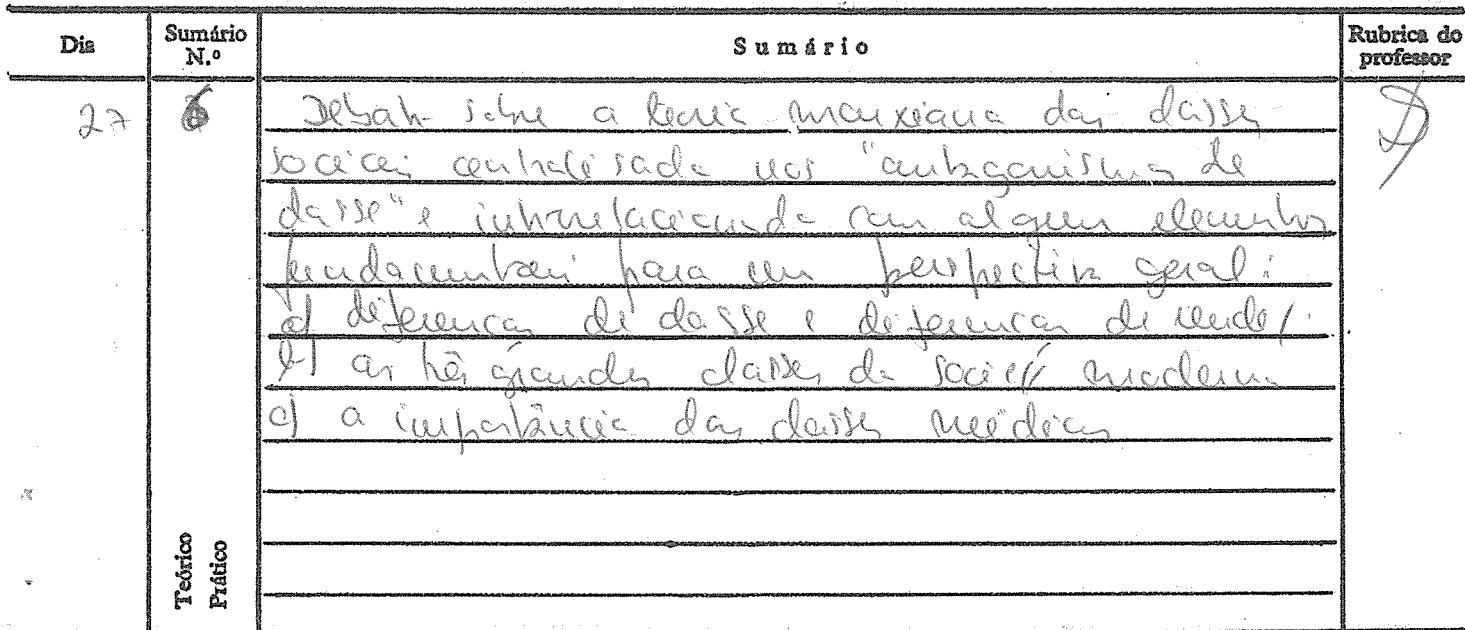 Dia
Sumário N.º
Sumário
Rubrica do professor
27
6
Debate sobre a teoria marxiana das classes
sociais centralisada nos "antagonismos de
classe" e interrelacionada com alguns elementos
fundamentais para uma perspectiva geral:
a) diferenças de classe e diferenças de
b) as três grandes classes da socied/ moderna
c) a importância das classes médias
Teórico
Prático